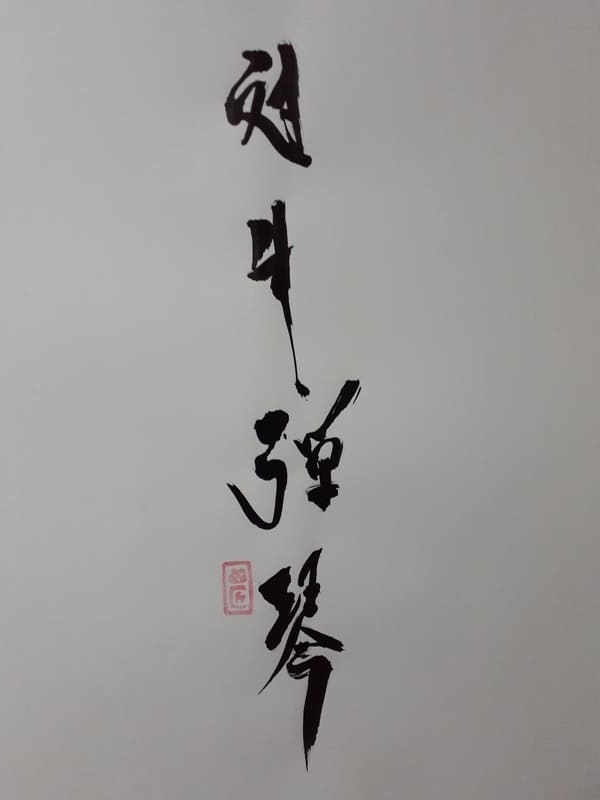 对牛弹琴